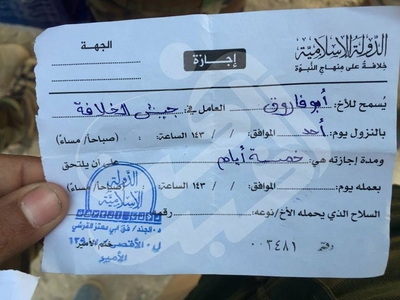 الدولة الإسلامية
خلافة على منهاج النبوة
إجازة
الجهة
يُسمح للأخ: أبو فاروق العامل في: جيش الخلافة
بالنزول يوم: أحد الموافق: / / ١٤٣ الساعة: : (صباحا/ مساءً)
ومدة إجازته هي: خمسة أيام على أن يلتحق
بعمله يوم: الموافق: / / ١٤٣ الساعة: : (صباحا/ مساءً)
السلاح الذي يحمله الأخ/نوعه: رقمه:
رقم ٠٠٣٤٨١
الدولة
الإسلامية
الأمير